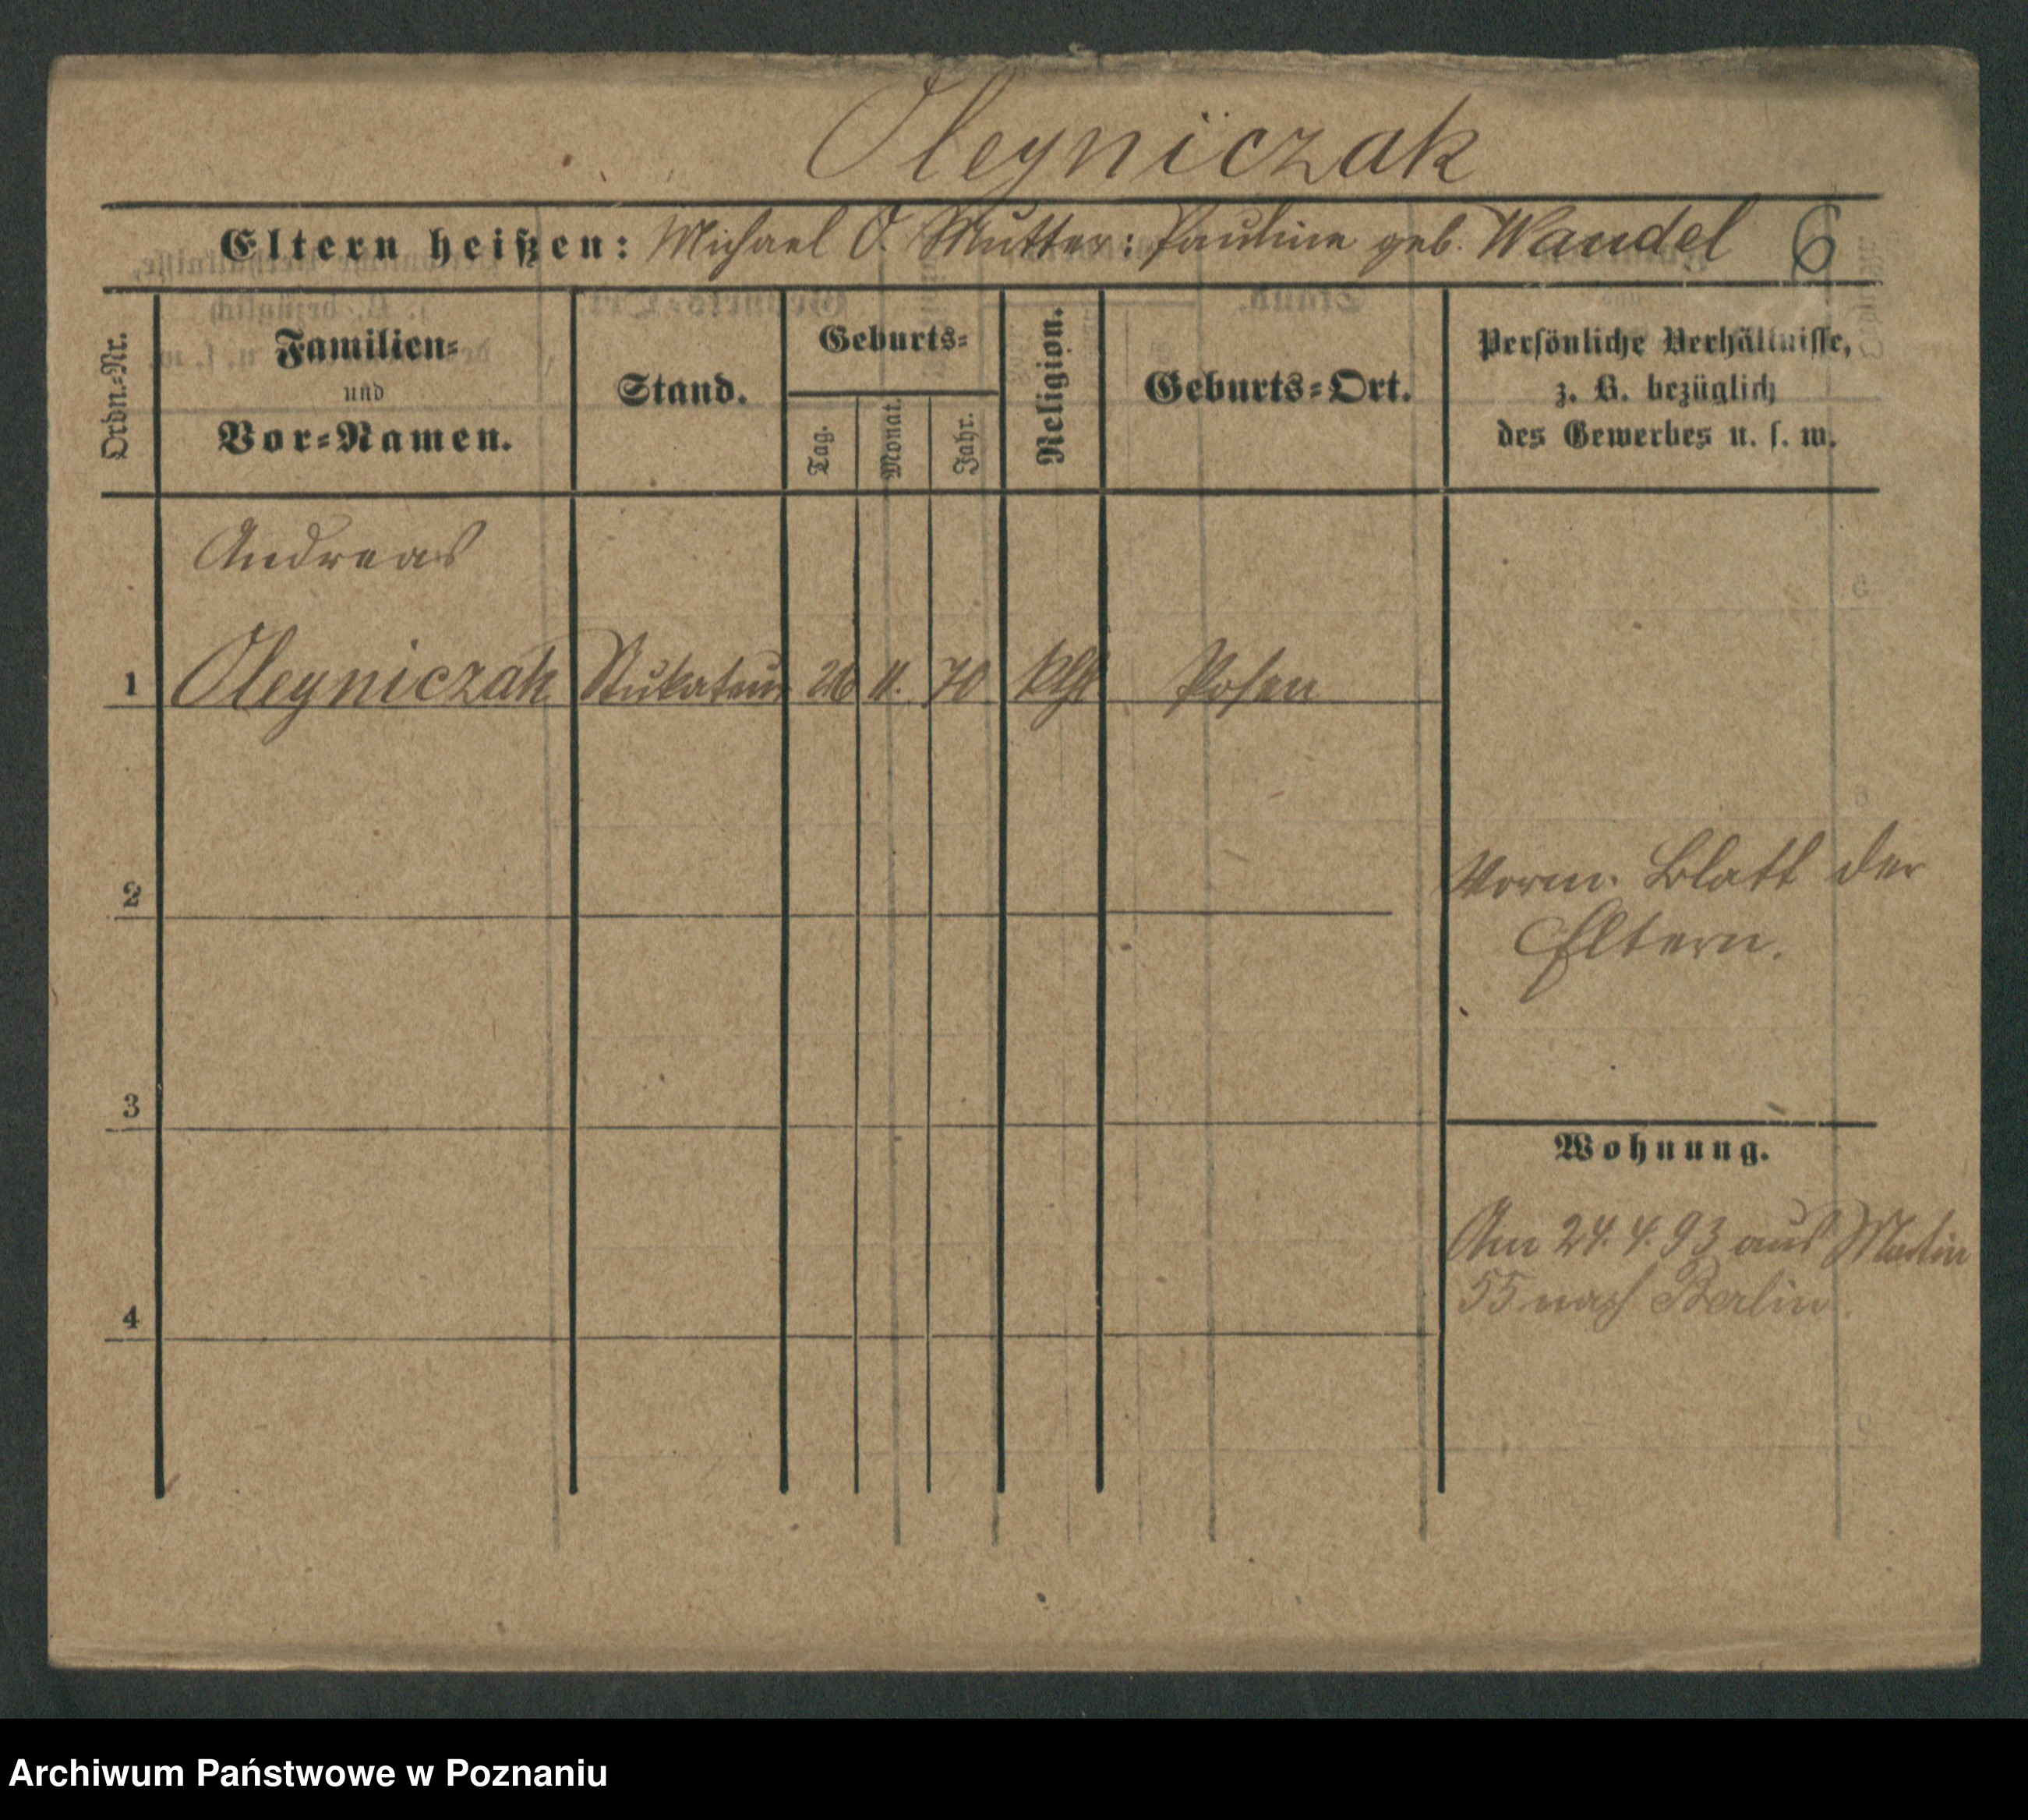 Oleyniczak
Eltern heißen: Michael O. Mutter: Pauline geb. Wandel 6
Ordn.=Nr.
Familien=
und
Vor=Namen.
Stand.
Geburts=
Tag.
Monat.
Jahr.
Religion.
Geburts=Ort.
Persönliche Verhältnisse,
z. B. bezüglich
des Gewerbes u. s. w.
Andreas
1 Oleyniczak Stukateur 26 11. 70 kth Posen
2
Vorm. Blatt der
Eltern.
3
Wohnung.
Am 24. 4. 93 aus Martin
55 nach Berlin.
4
Archiwum Państwowe w Poznaniu